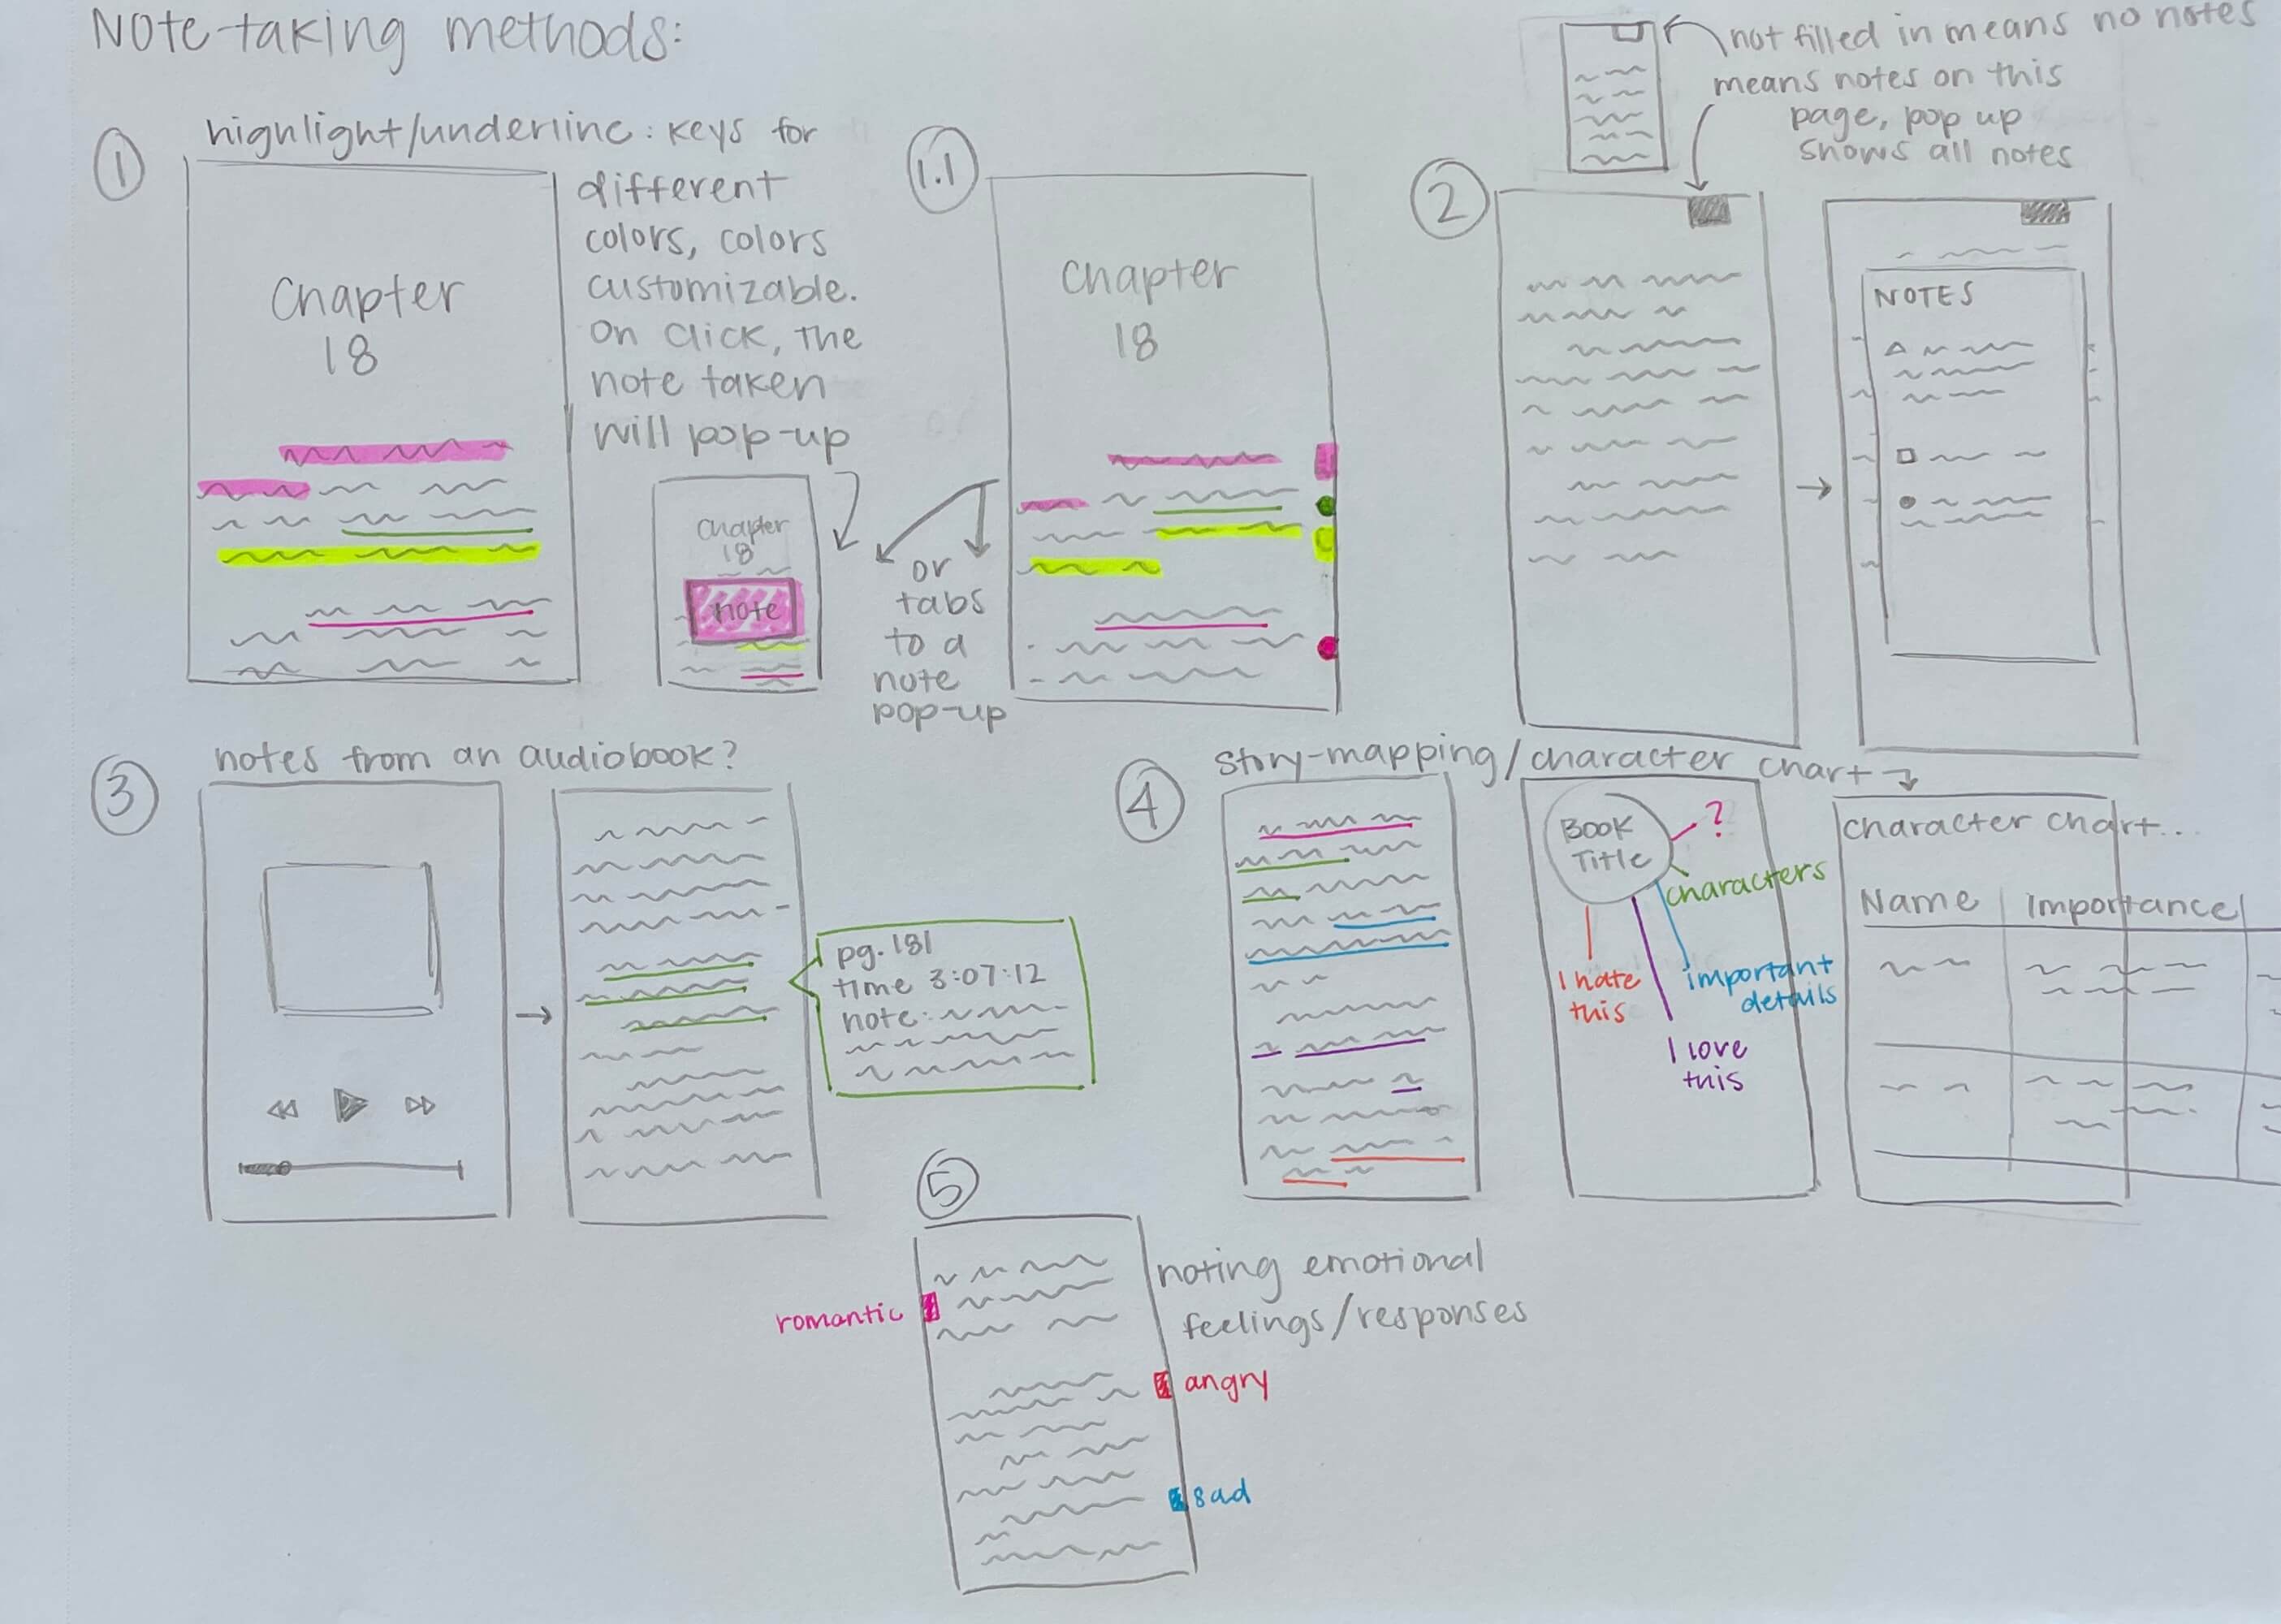 Note-taking methods:
1
highlight/underline: keys for
different
colors, colors
customizable.
On click, the
note taken
will pop-up
Chapter
18
Chapter
18
note
1.1
Chapter
18
or
tabs
to a
note
pop-up
2
not filled in means no notes
means notes on this
page, pop up
shows all notes
NOTES
3
notes from an audiobook?
pg. 181
time 3:07:12
note:
4
story-mapping/character chart
Book
Title
?
characters
important
details
I love
this
I hate
this
character chart...
Name
importance
5
noting emotional
feelings/responses
romantic
angry
sad